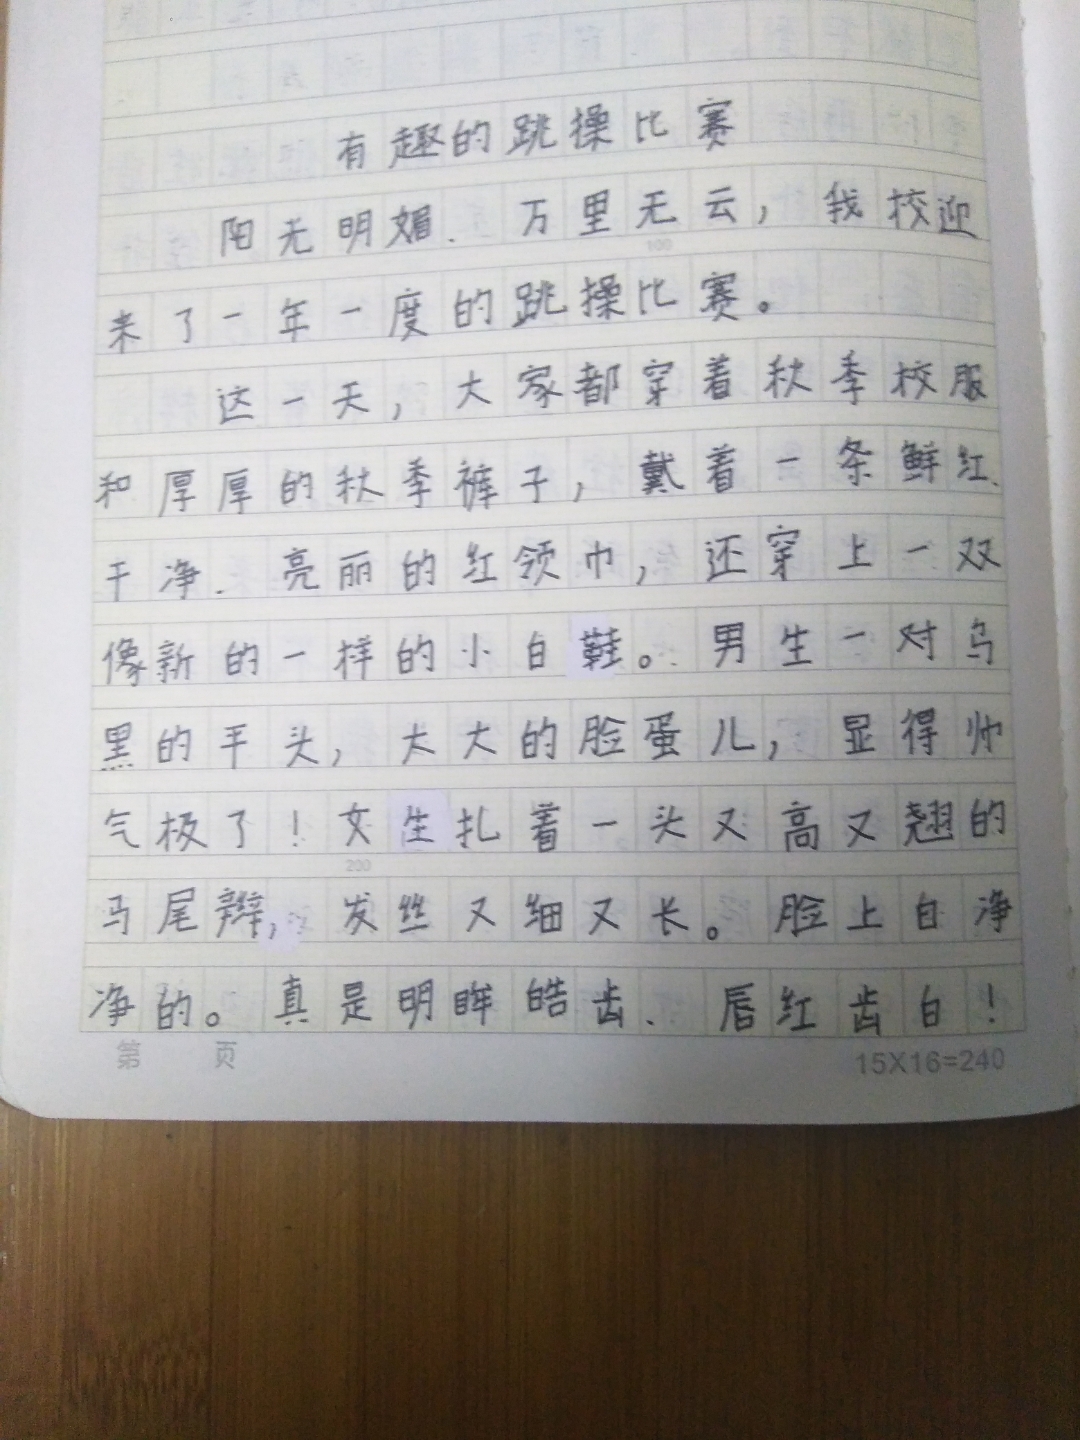 有趣的跳操比赛
阳光明媚、万里无云，我校迎
来了一年一度的跳操比赛。
这一天，大家都穿着秋季校服
和厚厚的秋季裤子，戴着一条鲜红、
干净、亮丽的红领巾，还穿上一双
像新的一样的小白鞋。男生一对乌
黑的平头，大大的脸蛋儿，显得帅
气极了！女生扎着一头又高又翘的
马尾辫，发丝又细又长。脸上白净
净的。真是明眸皓齿、唇红齿白！
100
200
第 页
15X16=240